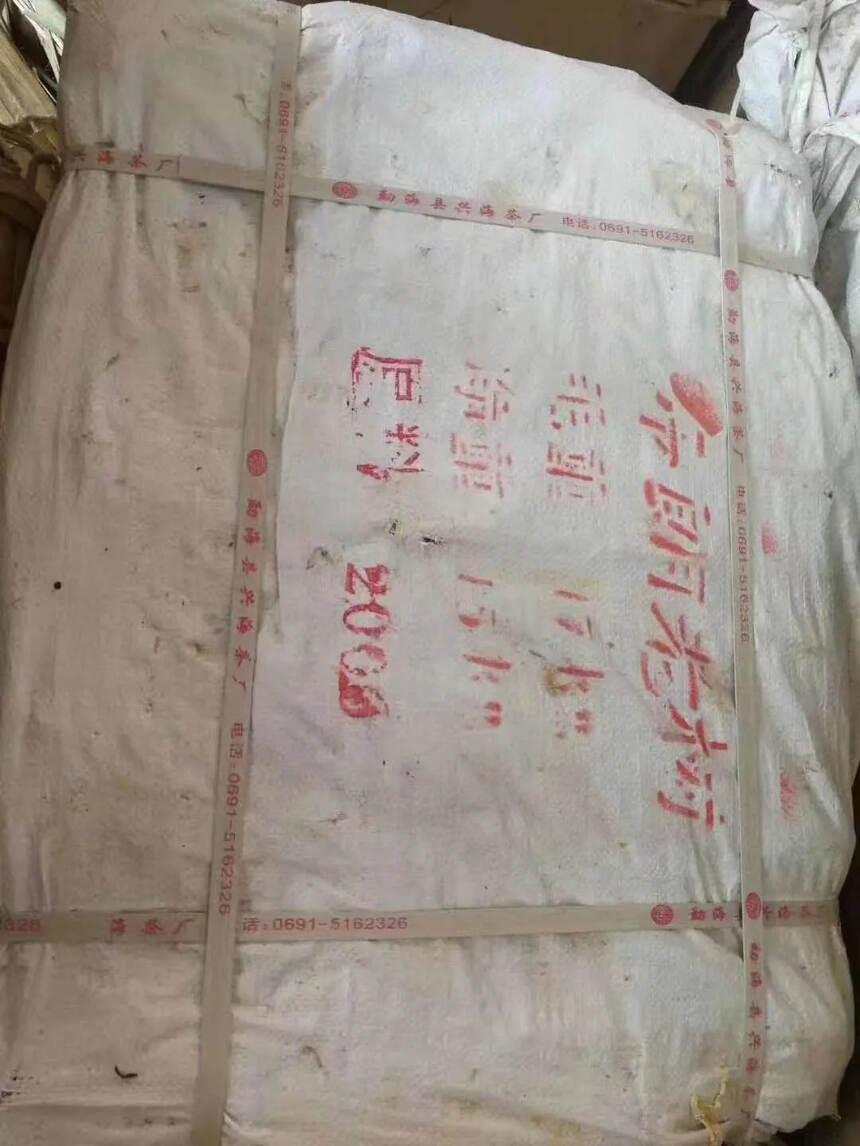 勐海县兴海茶厂 电话:0691-5162326
兴海茶厂
话:0691-5162326
勐海县兴海茶厂 电话:0691-5162326
勐海县兴海茶厂 电话:0691-5162326
布朗老树
毛重 17kg
净重 15kg
料 2006
话:0691-5162326
勐海县兴海茶厂